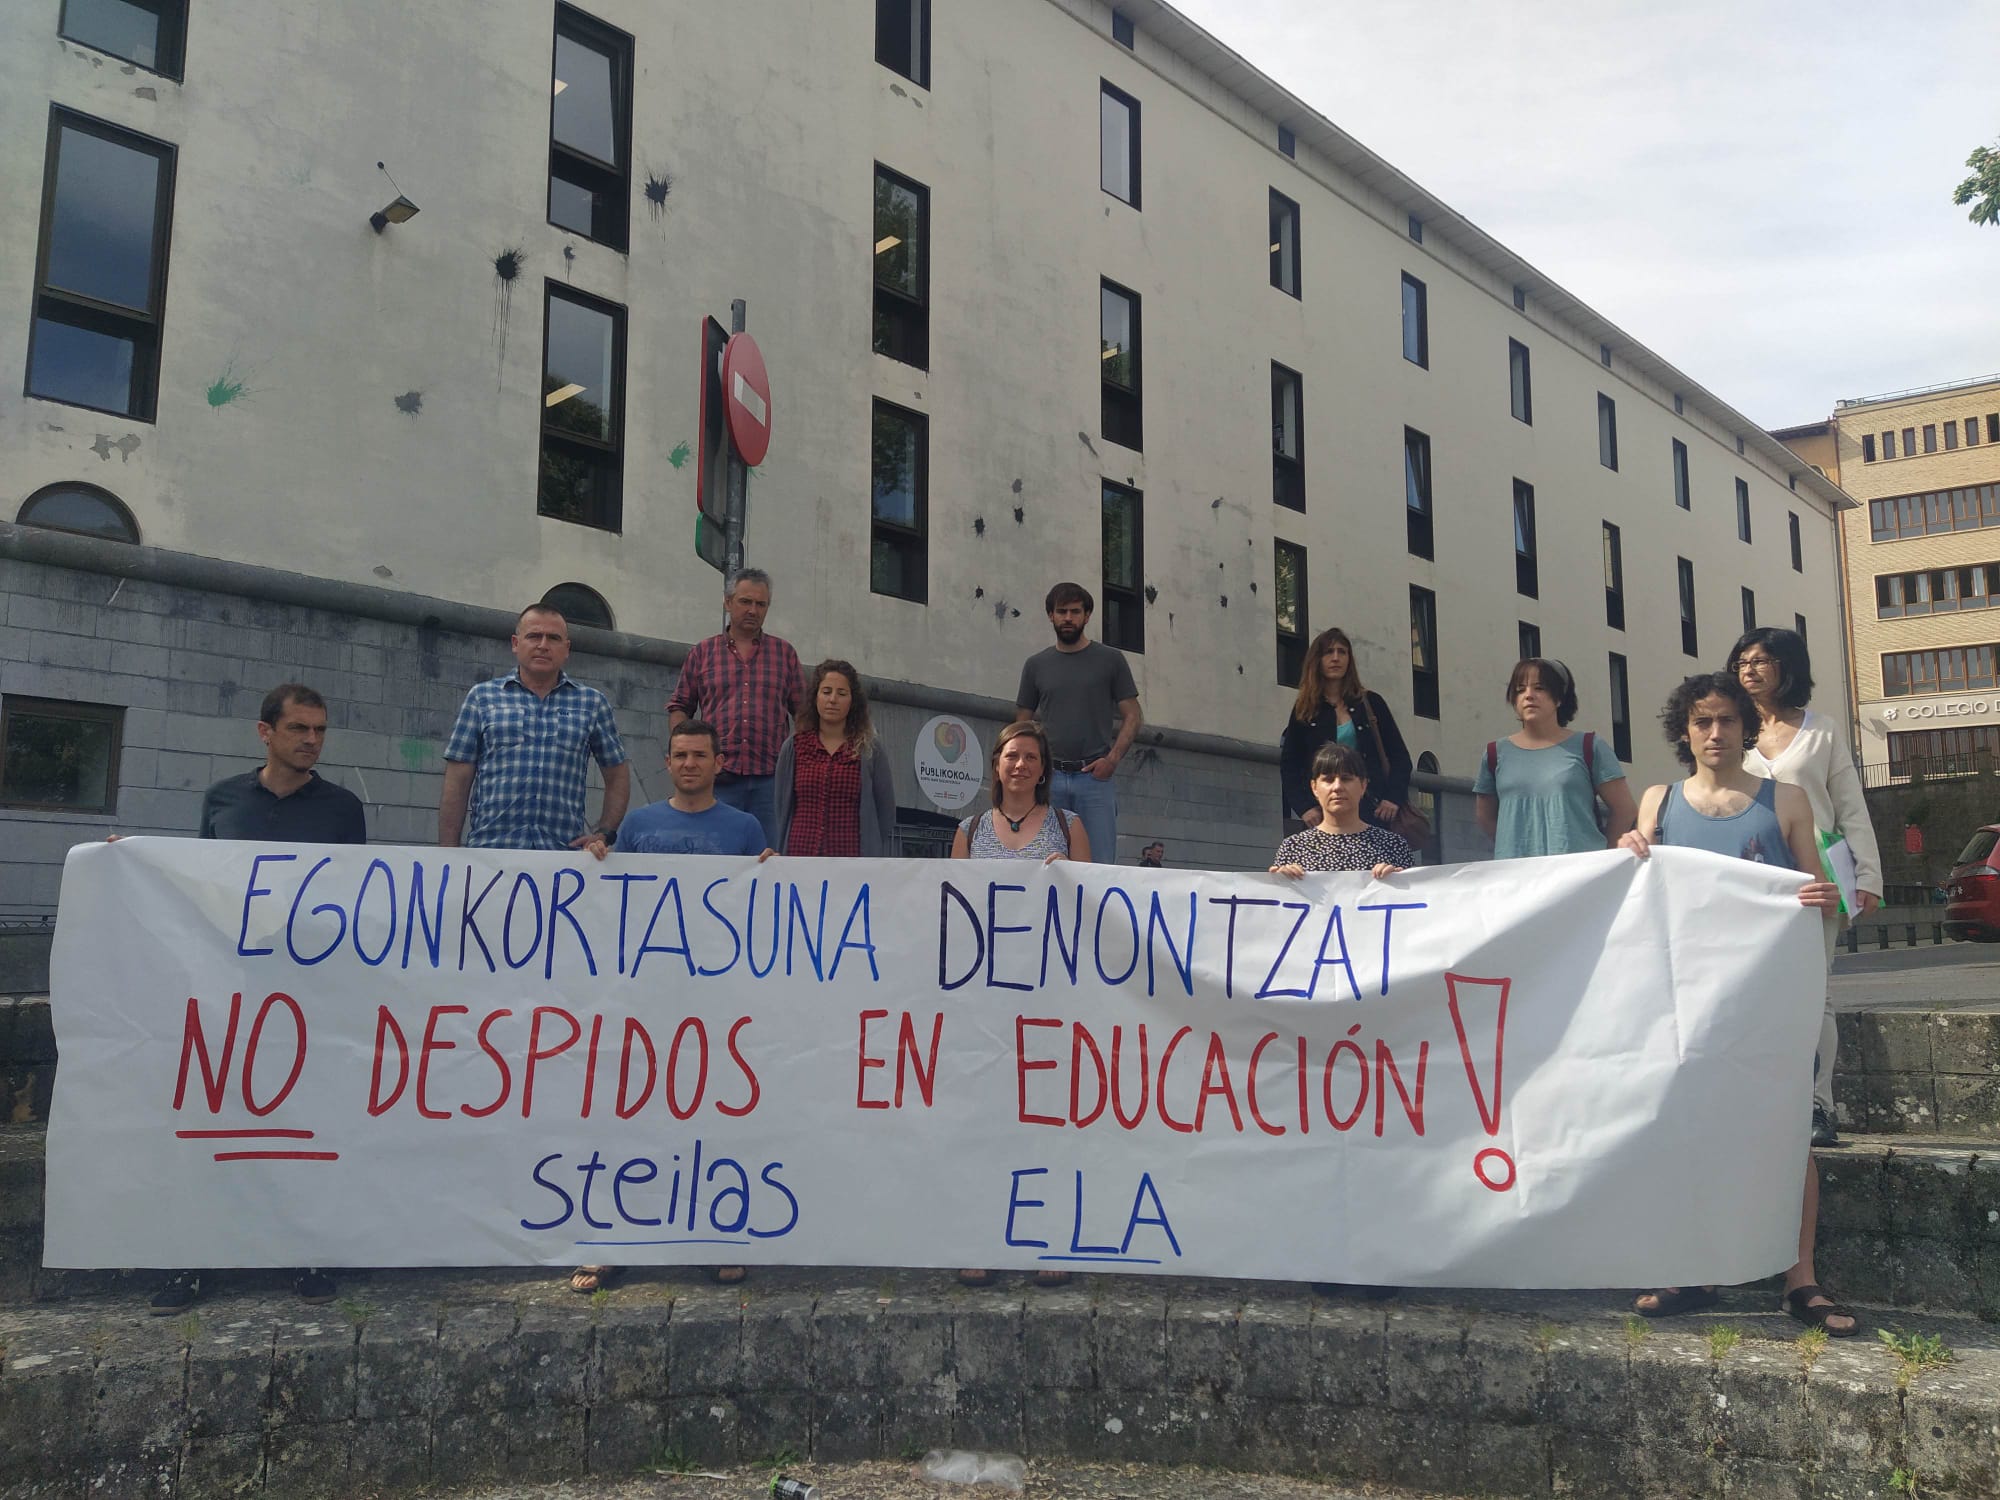 PUBLIKOKOA
COLEGIO D
EGONKORTASUNA DENONTZAT
NO DESPIDOS EN EDUCACIÓN!
steilas ELA